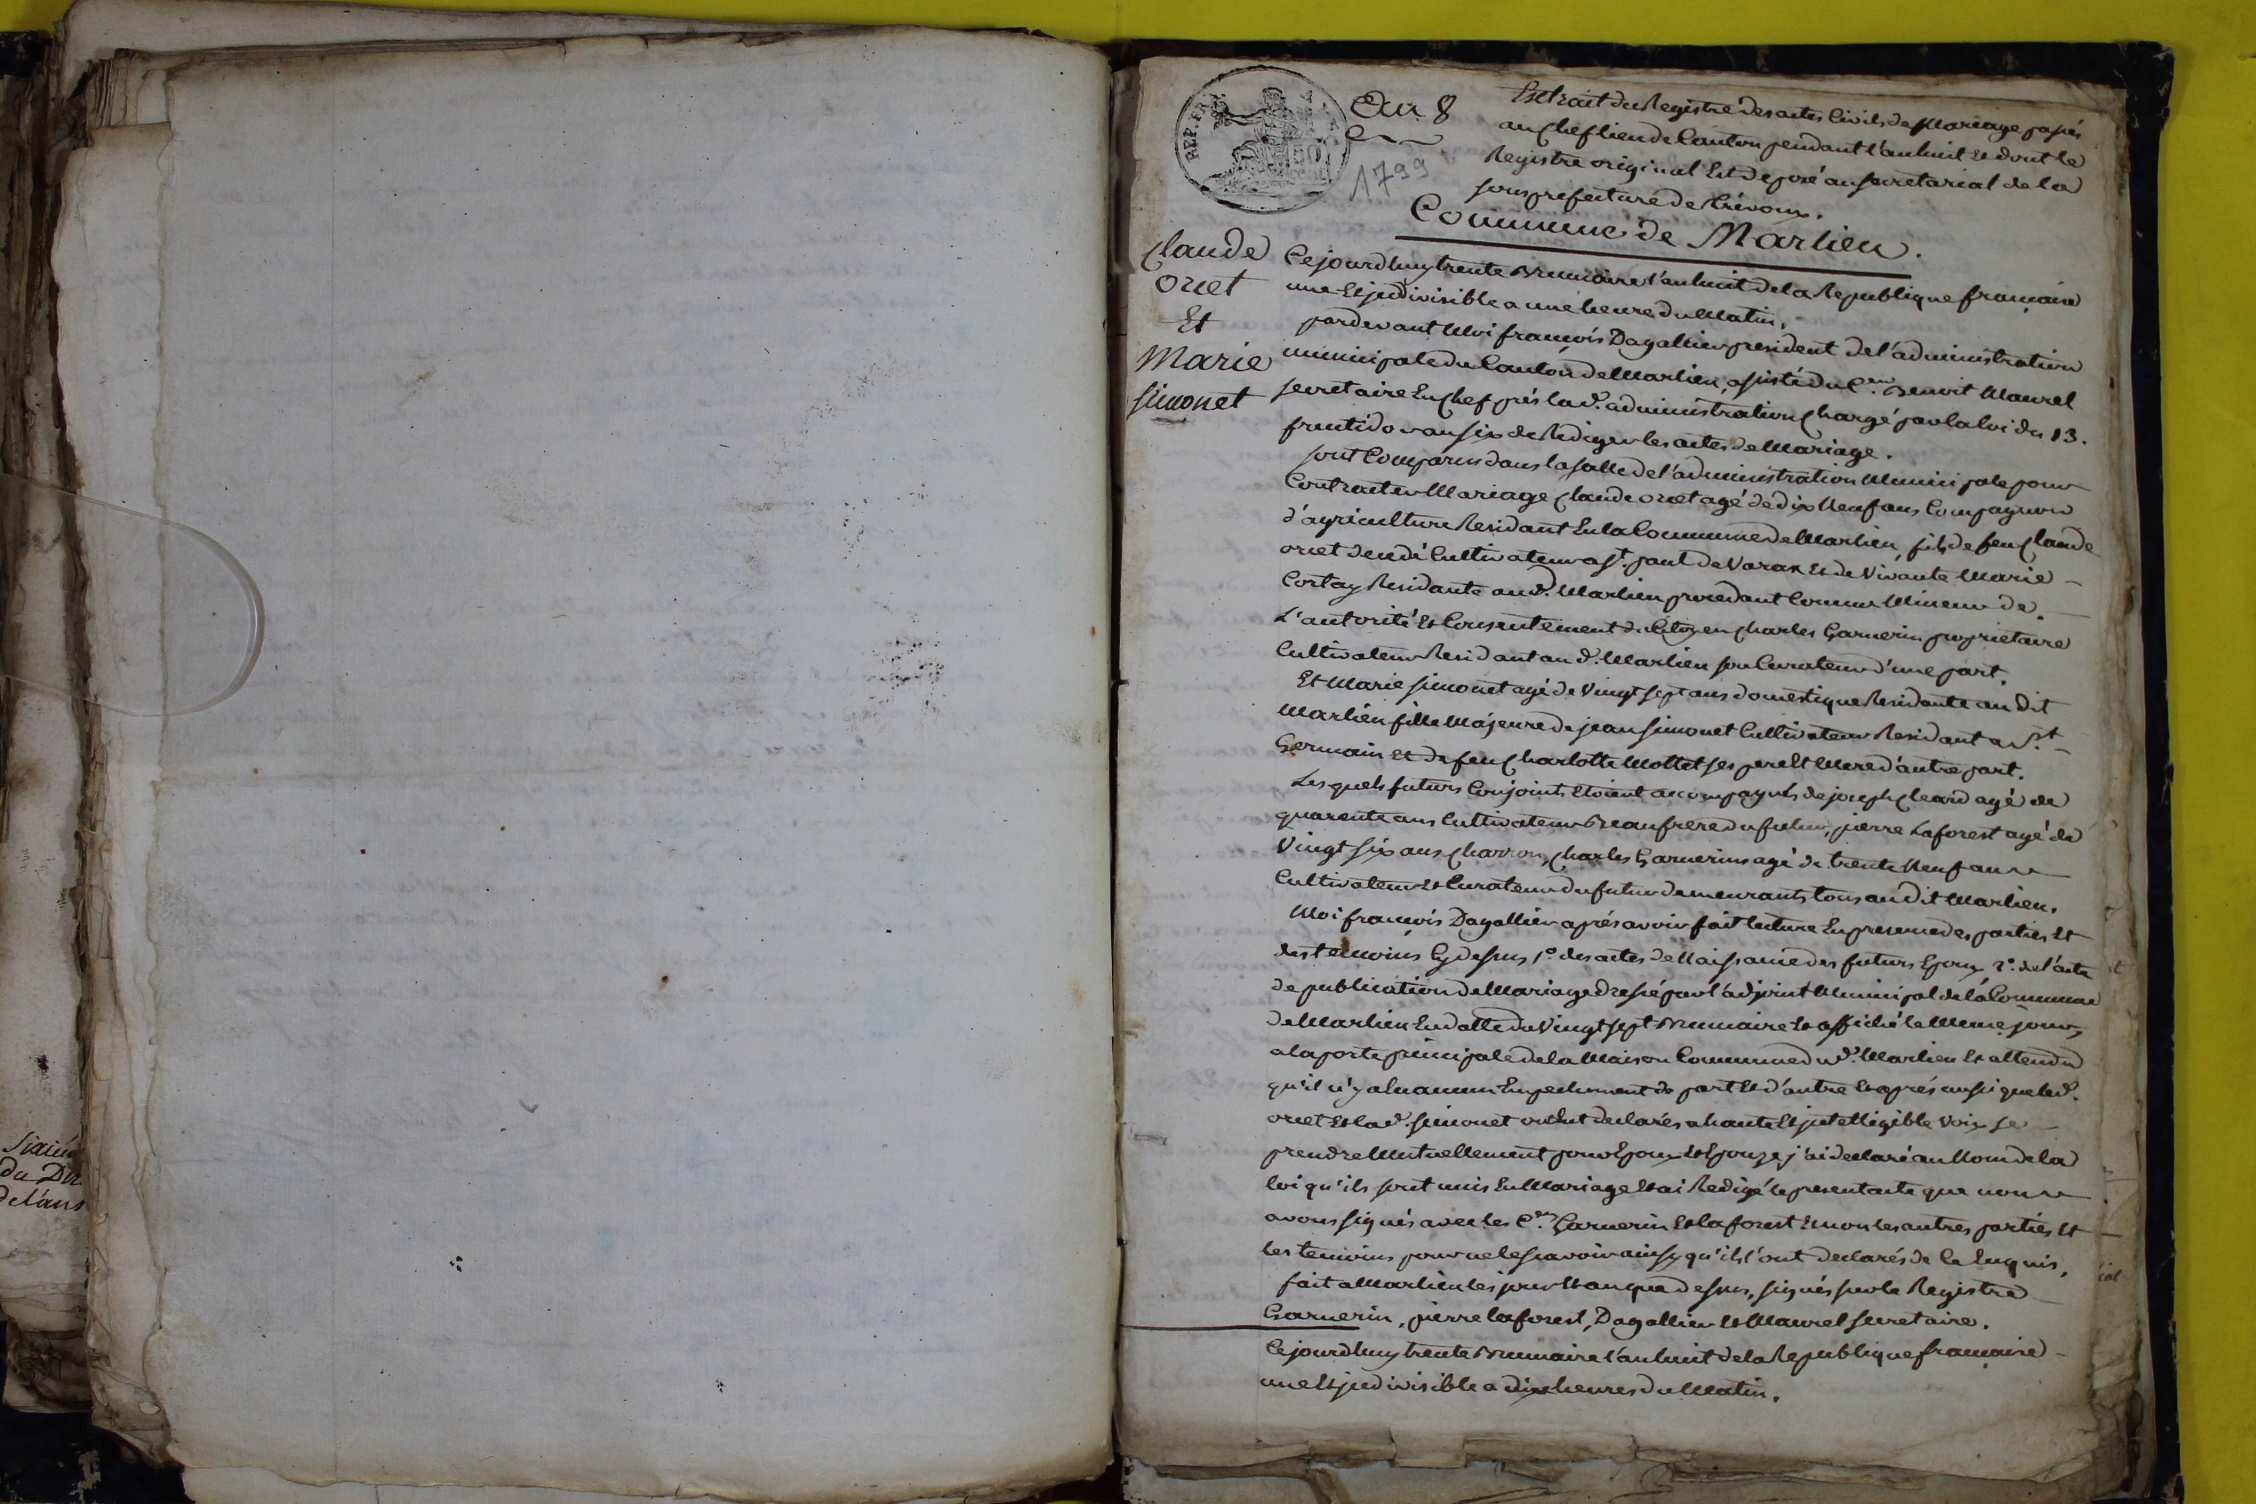 Sixiém
du Dir
de l'ans
REP. FRA.
An 8
1799
Extrait du Registre des actes Civils de Mariage passés
au Chef lieu de Canton pendant l'an huit Et dont le
Registre original Est deposé au secretariat de la
sousprefecture de Trévoux.
Commune de Marlieu.
Claude
oret
Et
Marie
simonet
Cejourdhuy trente Brumaire l'an huit de la Republique francaise
une Et jndivisible a une heure du Matin.
pardevant Moi francois Dagallier president de l'administration
municipale du Canton de Marlieu, assisté du C.en Benoit Maurel
secretaire En Chef prés la d. administration Chargé par la loi du 13.
fructidor an six de Rediger les actes de Mariage.
sont Comparus dans la salle de l'administration Municipale pour
Contracter Mariage Claude oret agé de dix Neuf ans Compagnon
d'agriculture Residant En la Commune de Marlieu, fils de feu Claude
oret decedé Cultivateur a St. paul de Varax Et de Vivante Marie
Cortay Residante au d. Marlieu procedant Comme Mineur de
L'autorité Et Consentement du Citoyen Charles Garnerin proprietaire
Cultivateur Residant au d. Marlieu son Curateur d'une part.
Et Marie simonet agé de Vingt sept ans domestique Residante au Dit
Marlieu fille Majeure de jean simonet Cultivateur Residant a St.
Germain et de feu Charlotte Mottet ses pere Et Mere d'autre part.
Lesquels futurs Conjoints Etoient accompagnés de joseph Cleard agé de
quarente ans Cultivateur Beaufrere du futur, pierre Laforest agé de
Vingt six ans Charron, Charles Garnerins agé de trente Neuf ans
Cultivateur Et Curateur du futur demeurants tous au Dit Marlieu.
Moi francois Dagallier aprés avoir fait lecture En presence des parties Et
des temoins Cy dessus 1.o des actes de Naissance des futurs Epoux 2.o de l'acte
de publication de Mariage dressé par l'adjoint Municipal de la Commune
de Marlieu En datte du Vingt sept Brumaire Et affiché le Meme jour,
a la porte principale de la Maison Commune du d. Marlieu Et attendu
qu'il n'y a Eu aucun Empechement de part Et d'autre Et aprés aussi que led.
oret Et la d. simonet ont Eut declarés a haute Et jntelligible Voix se
prendre Mutuellement pour Epoux Et Epouze, j'ai declaré au Nom de la
loi qu'ils sont unis En Mariage Et ai Redigé le present acte que nous
avons signés avec les C.ens Garnerin Et laforest Et non les autres parties Et
les temoins pour ne le scavoir ainsy qu'ils l'ont declarés de ce Enquis,
fait a Marlieu les jour Et an que dessus, signés sur le Registre
Garnerin, pierre laforest, Dagallier Et Maurel secretaire.
Cejourdhuy trente Brumaire l'an huit de la Republique francaise
une Et jndivisible a dix heures du Matin.